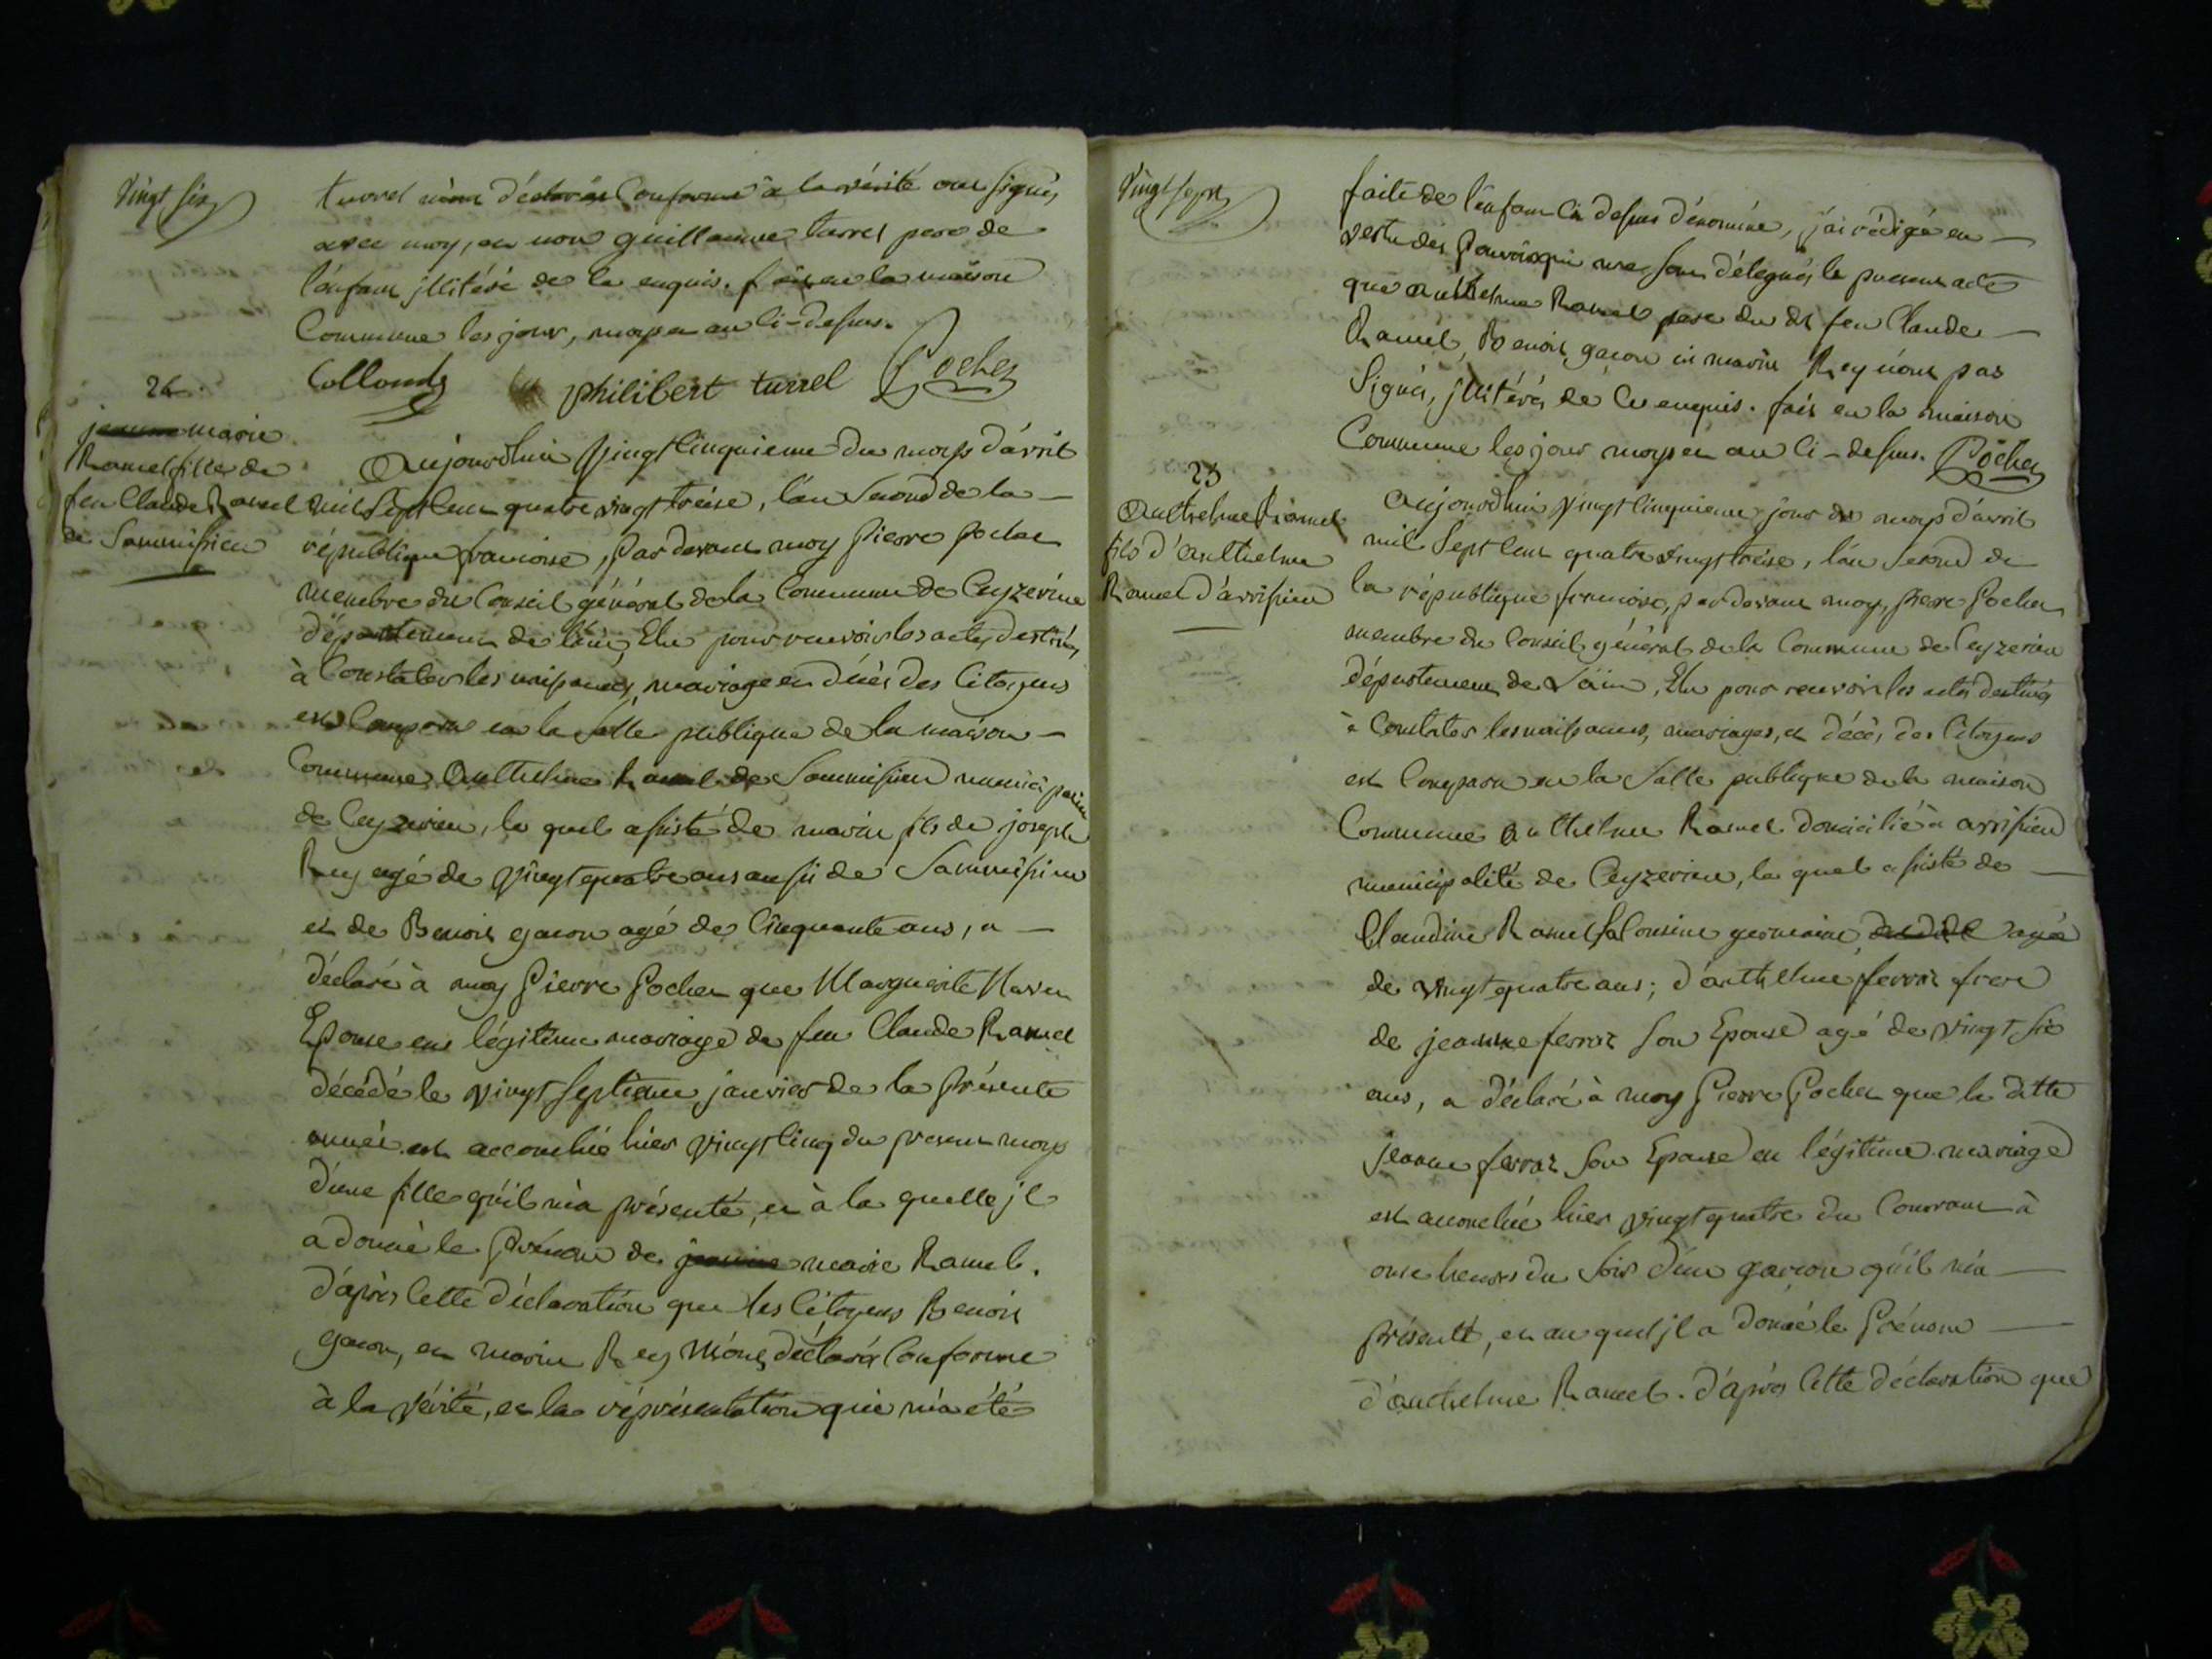 Vingt six
turrel m'ont déclarés Conforme à la vérité ont signés
avec moy, et non guillaume turrel pere de
l'enfant jllitéré de le enquis. fait en la maison
Commune les jour, moys et an ci-dessus.
Collomb philibert turrel Pochet
24.
jeanne marie
Ramel fille de
feu Claude Ramel
de Sammissieu
Aujourdhuy Vingt Cinquieme du moys d'avril
mil Sept Cent quatre vingt treise, l'an Second de la
république francoise, Par devant moy Pierre Pochet
membre du Conseil général de la Commune de Ceyzerieu
département de l'ain, Elu pour recevoir les actes destinés
à Constater les naissances, mariage et décés des Citoyens
est Comparu en la Salle publique de la maison
Commune Anthelme Ramel de Sammissieu
de Ceyzerieu, le quel assisté de marin fils de joseph
Rey agé de Vingt quatre ans aussi de Sammissieu
et de Benoit gacon agé de Cinquante ans, a
déclaré à moy Pierre Pochet que Marguerite
Epouse en légitime mariage de feu Claude Ramel
décédé le vingt Septieme janvier de la présente
année est accouchée hier vingt Cinq du present moys
d'une fille qu'il m'a présenté, et à la quelle jl
a donné le Prénom de jeanne marie Ramel.
d'après Cette déclaration que les Citoyens Benoit
gacon, et marin Rey m'ont déclaré Conforme
à la Vérité, et la représentation qui m'a été
Vingt sept
faite de l'enfant Ci dessus dénommé, j'ai rédigé en
vertu des Pouvoirs qui me sont délegués le present acte
que anthelme Ramel pere du dt feu Claude
Ramel, Benoit gacon et marin Rey n'ont pas
Signés, jllitérés de Ce enquis. fait en la maison
Commune les jour moys et an Ci-dessus. Pochet
25
Anthelme Ramel
fils d'anthelme
Ramel d'arvissieu
Aujourdhuy Vingt Cinquieme jour du moys d'avril
mil Sept Cent quatre vingt treise, l'an Second de
la république francoise, par devant moy, Pierre Pochet
membre du Conseil général de la Commune de Ceyzerieu
département de L'ain, Elu pour recevoir les actes destinés
à Constater les naissances, mariages, et décès des Citoyens
est Comparu en la Salle publique de la maison
Commune anthelme Ramel domicilié à arvissieu
municipalité de Ceyzerieu, le quel assisté de
Claudine Ramel sa Cousine germaine agée
de Vingt quatre ans; d'anthelme ferraz frere
de jeanne ferraz son Epouse agé de Vingt six
ans, a déclaré à moy Pierre Pochet que la ditte
jeanne ferraz Son Epouse en légitime mariage
est accouchée hier Vingt quatre du Courant à
onze heures du Soir d'un garcon qu'il m'a
présenté, et au quel jl a donné le Prénom
d'anthelme Ramel. d'après Cette déclaration que